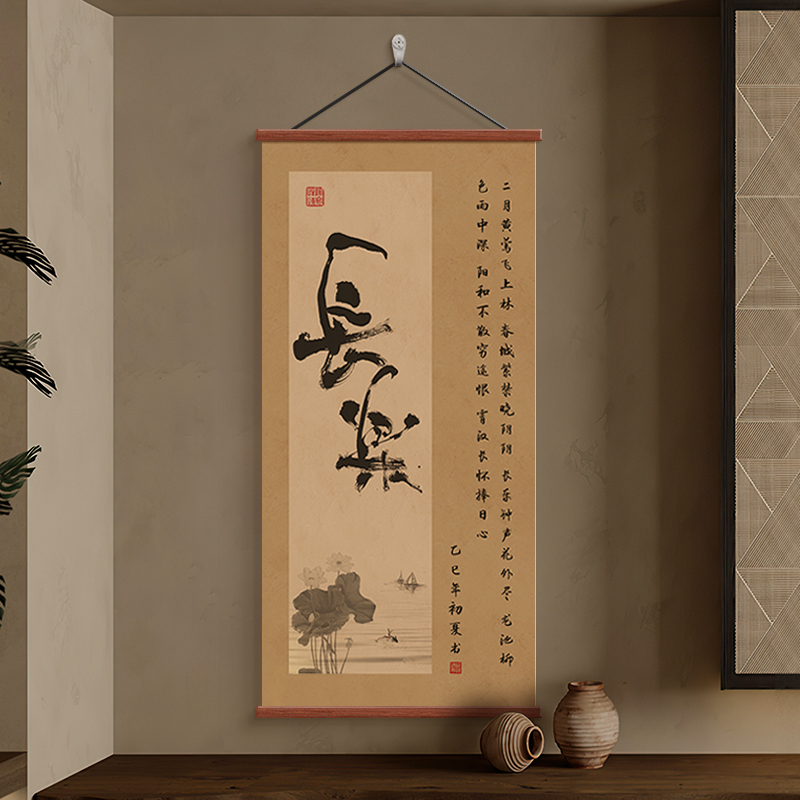 長樂
二月黄莺飞上林 春城紫禁晓阴阴 长乐钟声花外尽 龙池柳
色雨中深 阳和不散穷途恨 霄汉长怀捧日心
乙巳年初夏书